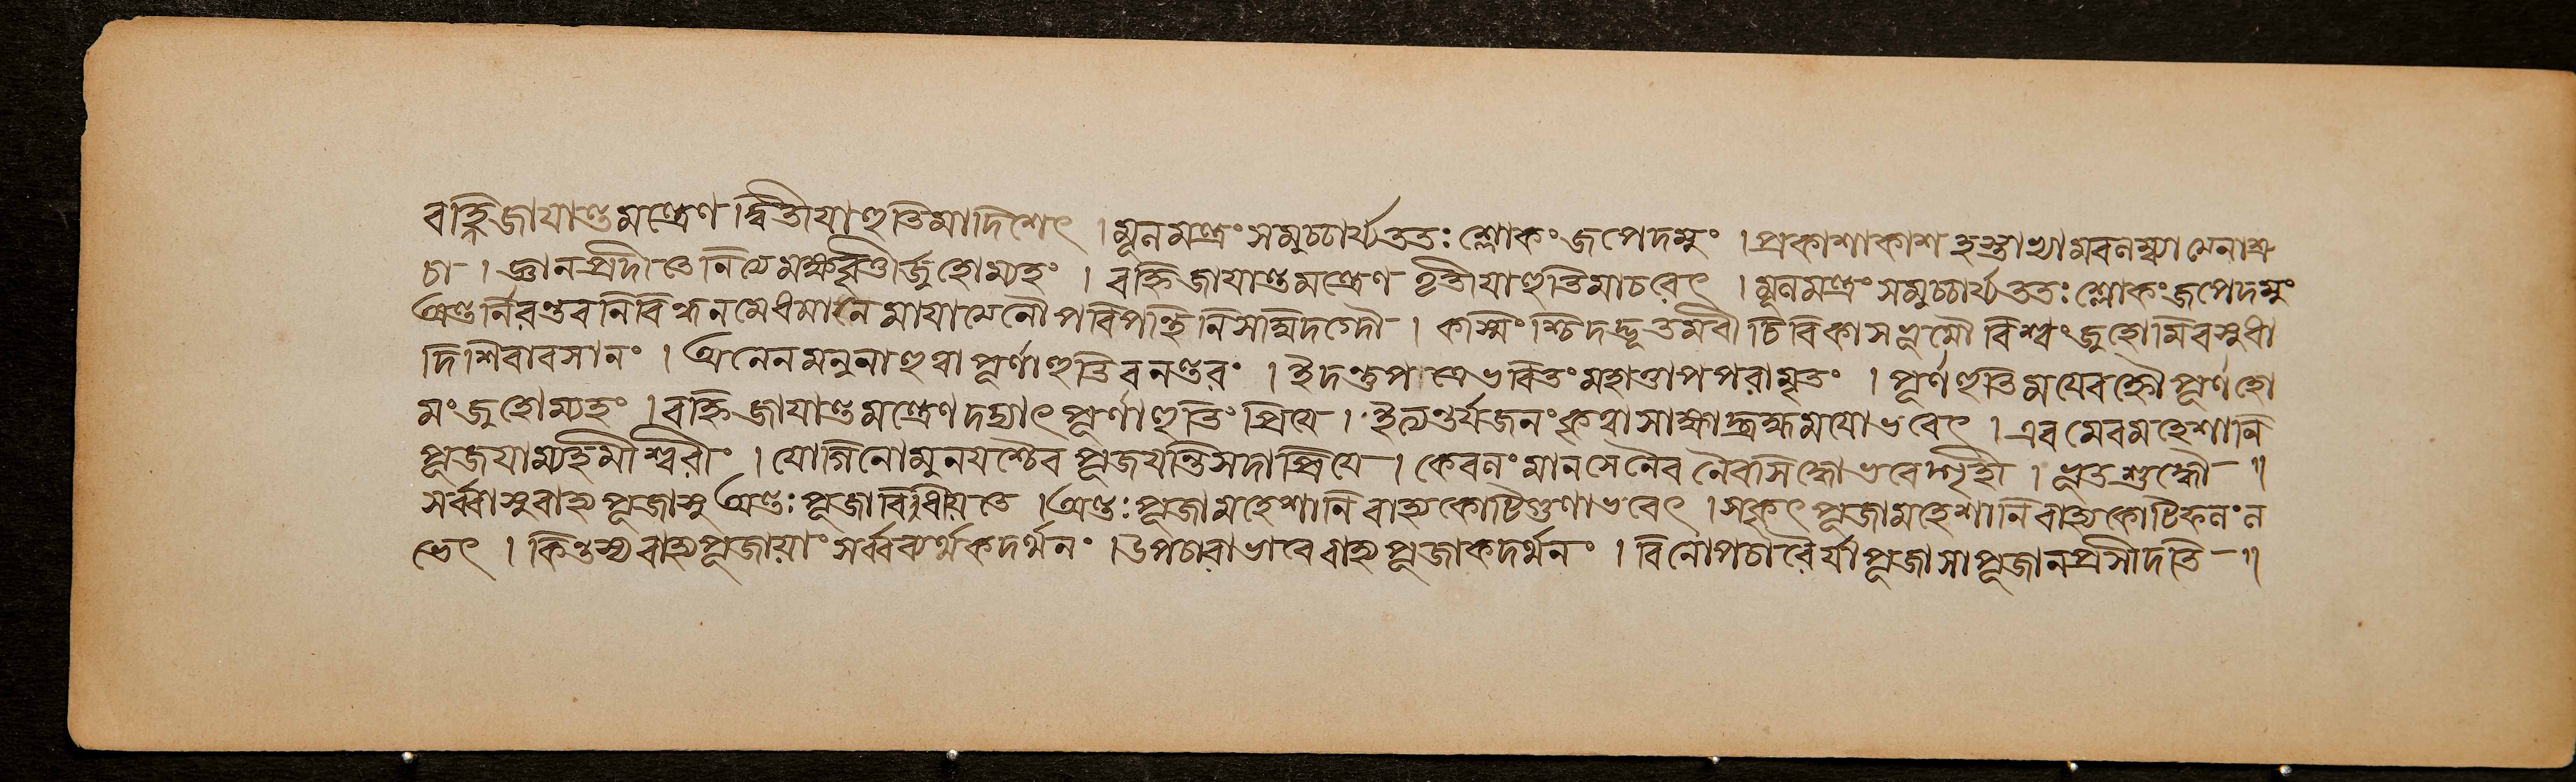 বহ্নিজাযান্তমন্ত্রেণ । দ্বিতীযাহুতিমাদিশেৎ । মূলমন্ত্রং সমুচ্চার্য্য ততঃ শ্লোকং জপেদমুং । প্রকাশাকাশহস্তাভ্যামবলম্ব্যোন্মনাশ্রু
চা । জ্ঞানপ্রদীপ্তে নিত্যমক্ষবৃত্তীর্জুহোম্যহং । বহ্নিজাযান্তমন্ত্রেণ তৃতীযাহুতিমাচরেৎ । মূলমন্ত্রং সমুচ্চার্য্য ততঃ শ্লোকং জপেদমুং
অন্তর্নিরন্তরনিরিন্ধনমেধমানে মাযান্ধকারপরিপন্থিনি সম্বিদগ্নৌ । কস্মিংশ্চিদদ্ভূতমরীচিবিকাসভূমৌ বিশ্বং জুহোমি বসুধা
দিশিবাবসানং । অনেন মনুনা হুত্বা পূর্ণাহুতিরনন্তরং । ইদন্তু পাত্রভরিতং মহাতাপপরামৃতং । পূর্ণাহুতিমযে বহ্নৌ পূর্ণহো
মং জুহোম্যহং । বহ্নিজাযান্তমন্ত্রেণ দদ্যাৎ পূর্ণাহুতিং প্রিযে । ইত্যন্তর্যজনং কৃত্বা সাক্ষাদ্ব্রহ্মমযো ভবেৎ । এবমেব মহেশানি
পূজযাম্যহমীশ্বরীং । যোগিনো মুনযশ্চৈব পূজযন্তি সদা প্রিযে । কেবলং মানসেনৈব নৈব সিদ্ধো ভবেদ্গৃহী । ভূতশুদ্ধৌ ॥
সর্ব্বাসু বাহ্যপূজাসু অন্তঃপূজা বিধীয়তে । অন্তঃপূজা মহেশানি বাহ্যকোটিগুণা ভবেৎ । সকৃৎ পূজা মহেশানি বাহ্যকোটিফলং ল
ভেৎ । কিন্তস্য বাহ্যপূজায়াং সর্ব্বব্যর্থকদর্থনং । উপচারাভাবে বাহ্যপূজা কদর্থনং । বিনোপচারৈর্যা পূজা সা পূজা ন প্রসীদতি ॥